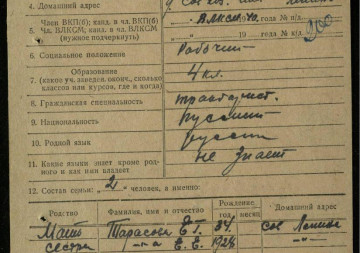 4. Домашний адрес
Член ВКП(б), канд. в чл. ВКП(б)
5. Чл. ВЛКСМ, канд. в чл. ВЛКСМ
(нужное подчеркнуть)
ВЛКСМ года № п/б.
" " 19 года № п/к.
6. Социальное положение Рабочий
Образование
7. (какое уч. заведен. оконч., сколько
классов или курсов, где и когда)
4 кл.
8. Гражданская специальность тракторист.
9. Национальность русский
10. Родной язык русск
11. Какие языки знает кроме род-
ного и как ими владеет
не знает
12. Состав семьи: „ 2 " человек, а именно:
Родство Фамилия, имя и отчество Рождение, год месяц Домашний адрес
Мать Тарасова Е.Г.
сестра -"-га Е.Е. 1924